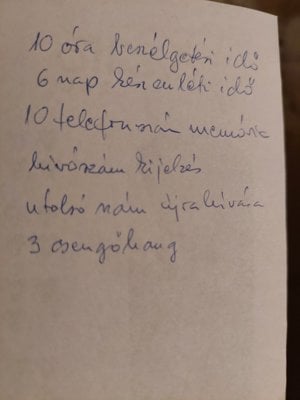 10 óra beszélgetési idő
6 nap készenléti idő
10 telefonszám memória
hívószám kijelzés
utolsó szám újrahívása
3 csengőhang